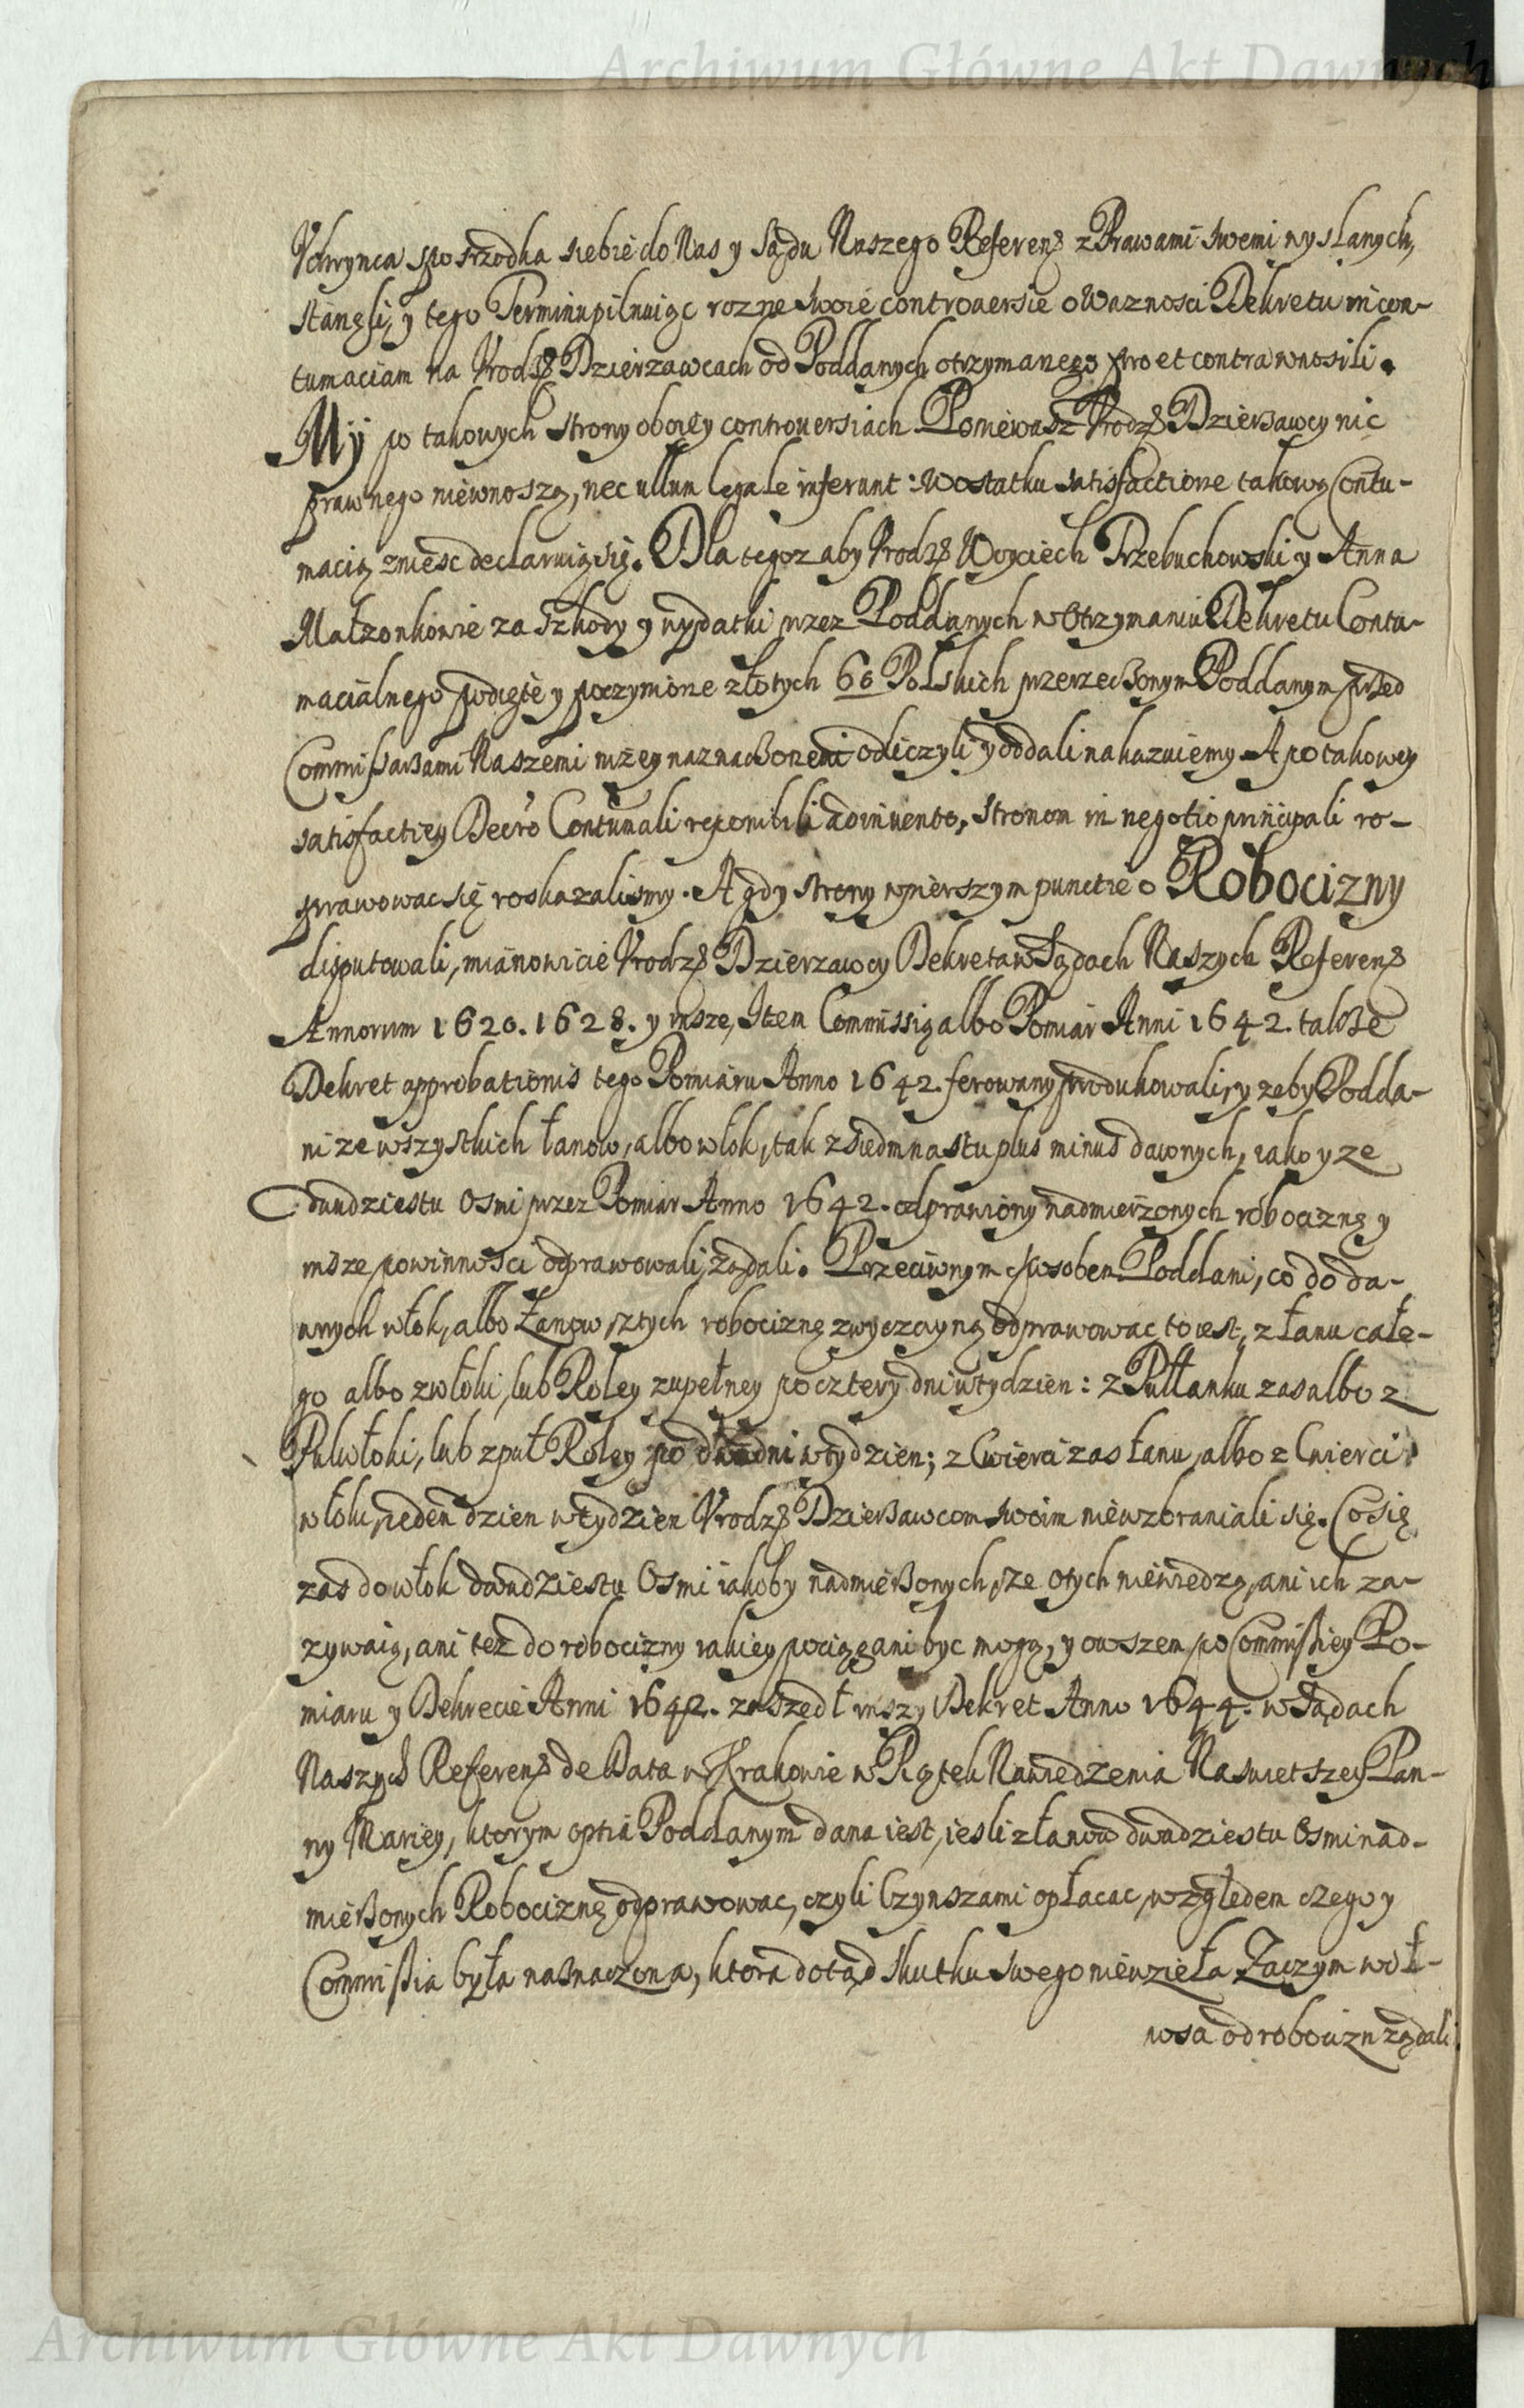 Archiwum Główne Akt Dawnych
Uchrynca posrzodka siebie do Nas y Sądu Naszego Referenꝫ z Prawami swemi wysłanych,
stanęli, y tego Terminu pilnuiąc rozne swoie controuersie o Wazności Dekretu in con-
tumaciam na Vrodzꝫ Dzierzawcach od Poddanych otrzymanego pro et contra wnosili.
My po takowych strony oboiey controuersiach Poniewasz Vrodzꝫ Dzierżawcy nic
prawnego niewnoszą, nec ullum legale inferunt: Wostatku satisfactione takową Contu-
macią zniesc declaruią się. Dla tegoz aby Vrodzꝫ Woyciech Przebuchowski y Anna
Małzonkowie za Szkody y wydatki przez Poddanych w Otrzymaniu Dekretu Contu-
macialnego podięte y poczynione złotych 60 Polskich przerzeczonym Poddanym przed
Commissarzami Naszemi nizey naznaczonemi odliczyli y oddali nakazuiemy. A po takowey
satisfactiey Decro Contumali reponibili adinuento, Stronom in negotio principali ro-
sprawowac się roskazalismy. A gdy strony w pierszym punctie o Robocizny
disputowali, mianowicie Vrodzꝫ Dzierzawcy Dekreta w Sądach Naszych Referenꝫ
Annorum 1620. 1628. y insze, Item Commissią albo Pomiar Anni 1642. takze
Dekret approbationis tego Pomiaru Anno 1642. ferowany produkowali, y zeby Podda-
ni ze wszystkich łanow, albo włok, tak z siedmnastu plus minus dawnych, iako y ze
dwudziestu Osmi przez Pomiar Anno 1642. odprawiony nadmierzonych robociznę y
insze powinności odprawowali, ządali. Przeciwnym sposobem Poddani, co do da-
wnych włok, albo Łanow, z tych robociznę zwyczayną odprawowac to iest, z łanu całe-
go albo z włoki, lub Roley zupełney po cztery dni w tydzien: z Pułłanku zas albo z
Pułwłoki, lub z puł Roley po dwa dni w tydzien; z Cwierci zas łanu, albo z Cwierci
włoki, ieden dzien w tydzien Vrodzꝫ Dzierżawcom swoim niewzbraniali się. Co się
zas do włok dwudziestu Osmi iakoby nadmierzonych, ze o tych niewiedzą, ani ich za-
zywaią, ani tez do robocizny iakiey pociągani byc mogą, y owszem po Commissiey Po-
miaru y Dekrecie Anni 1642. zaszedł inszy Dekret Anno 1644. w Sądach
Naszych Referenꝫ de Data w Krakowie w Piątek Nawiedzenia Naswietszey Pan-
ny Mariey, ktorym optia Poddanym dana iest, iesli z łanow dwudziestu Osmi nad-
mierzonych Robociznę odprawowac, czyli Czynszami opłacac, względem czego y
Commissia była naznaczona, ktora dotąd skutku swego niewzieła. Zaczym wo ł-
wsa od robocizn ządali
Archiwum Główne Akt Dawnych